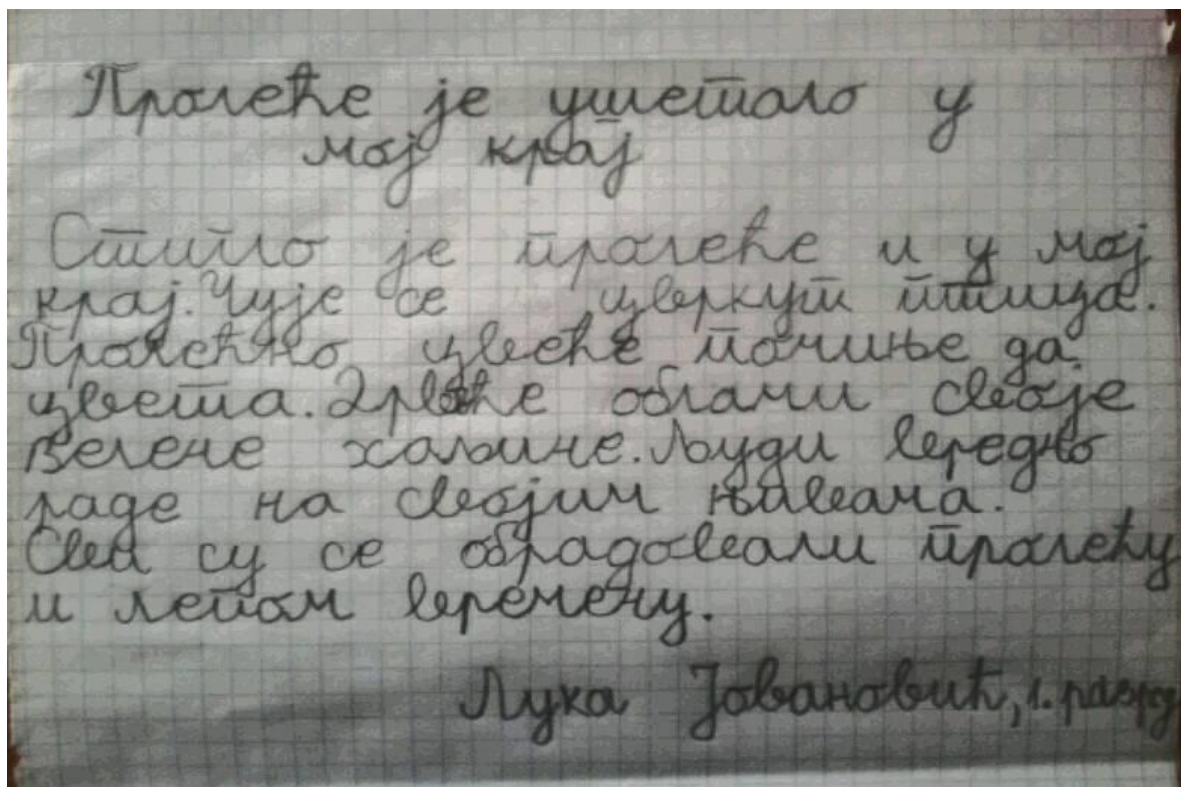 Пролеће је ушетало у
мој крај
Стигло је пролеће и у мој
крај. Чује се цвркут птица.
Пролећно цвеће почиње да
цвета. Дрвеће облачи своје
зелене хаљине. Људи вредно
раде на својим њивама.
Сви су се обрадовали пролећу
и лепом времену.
Лука Јовановић, 1. разред